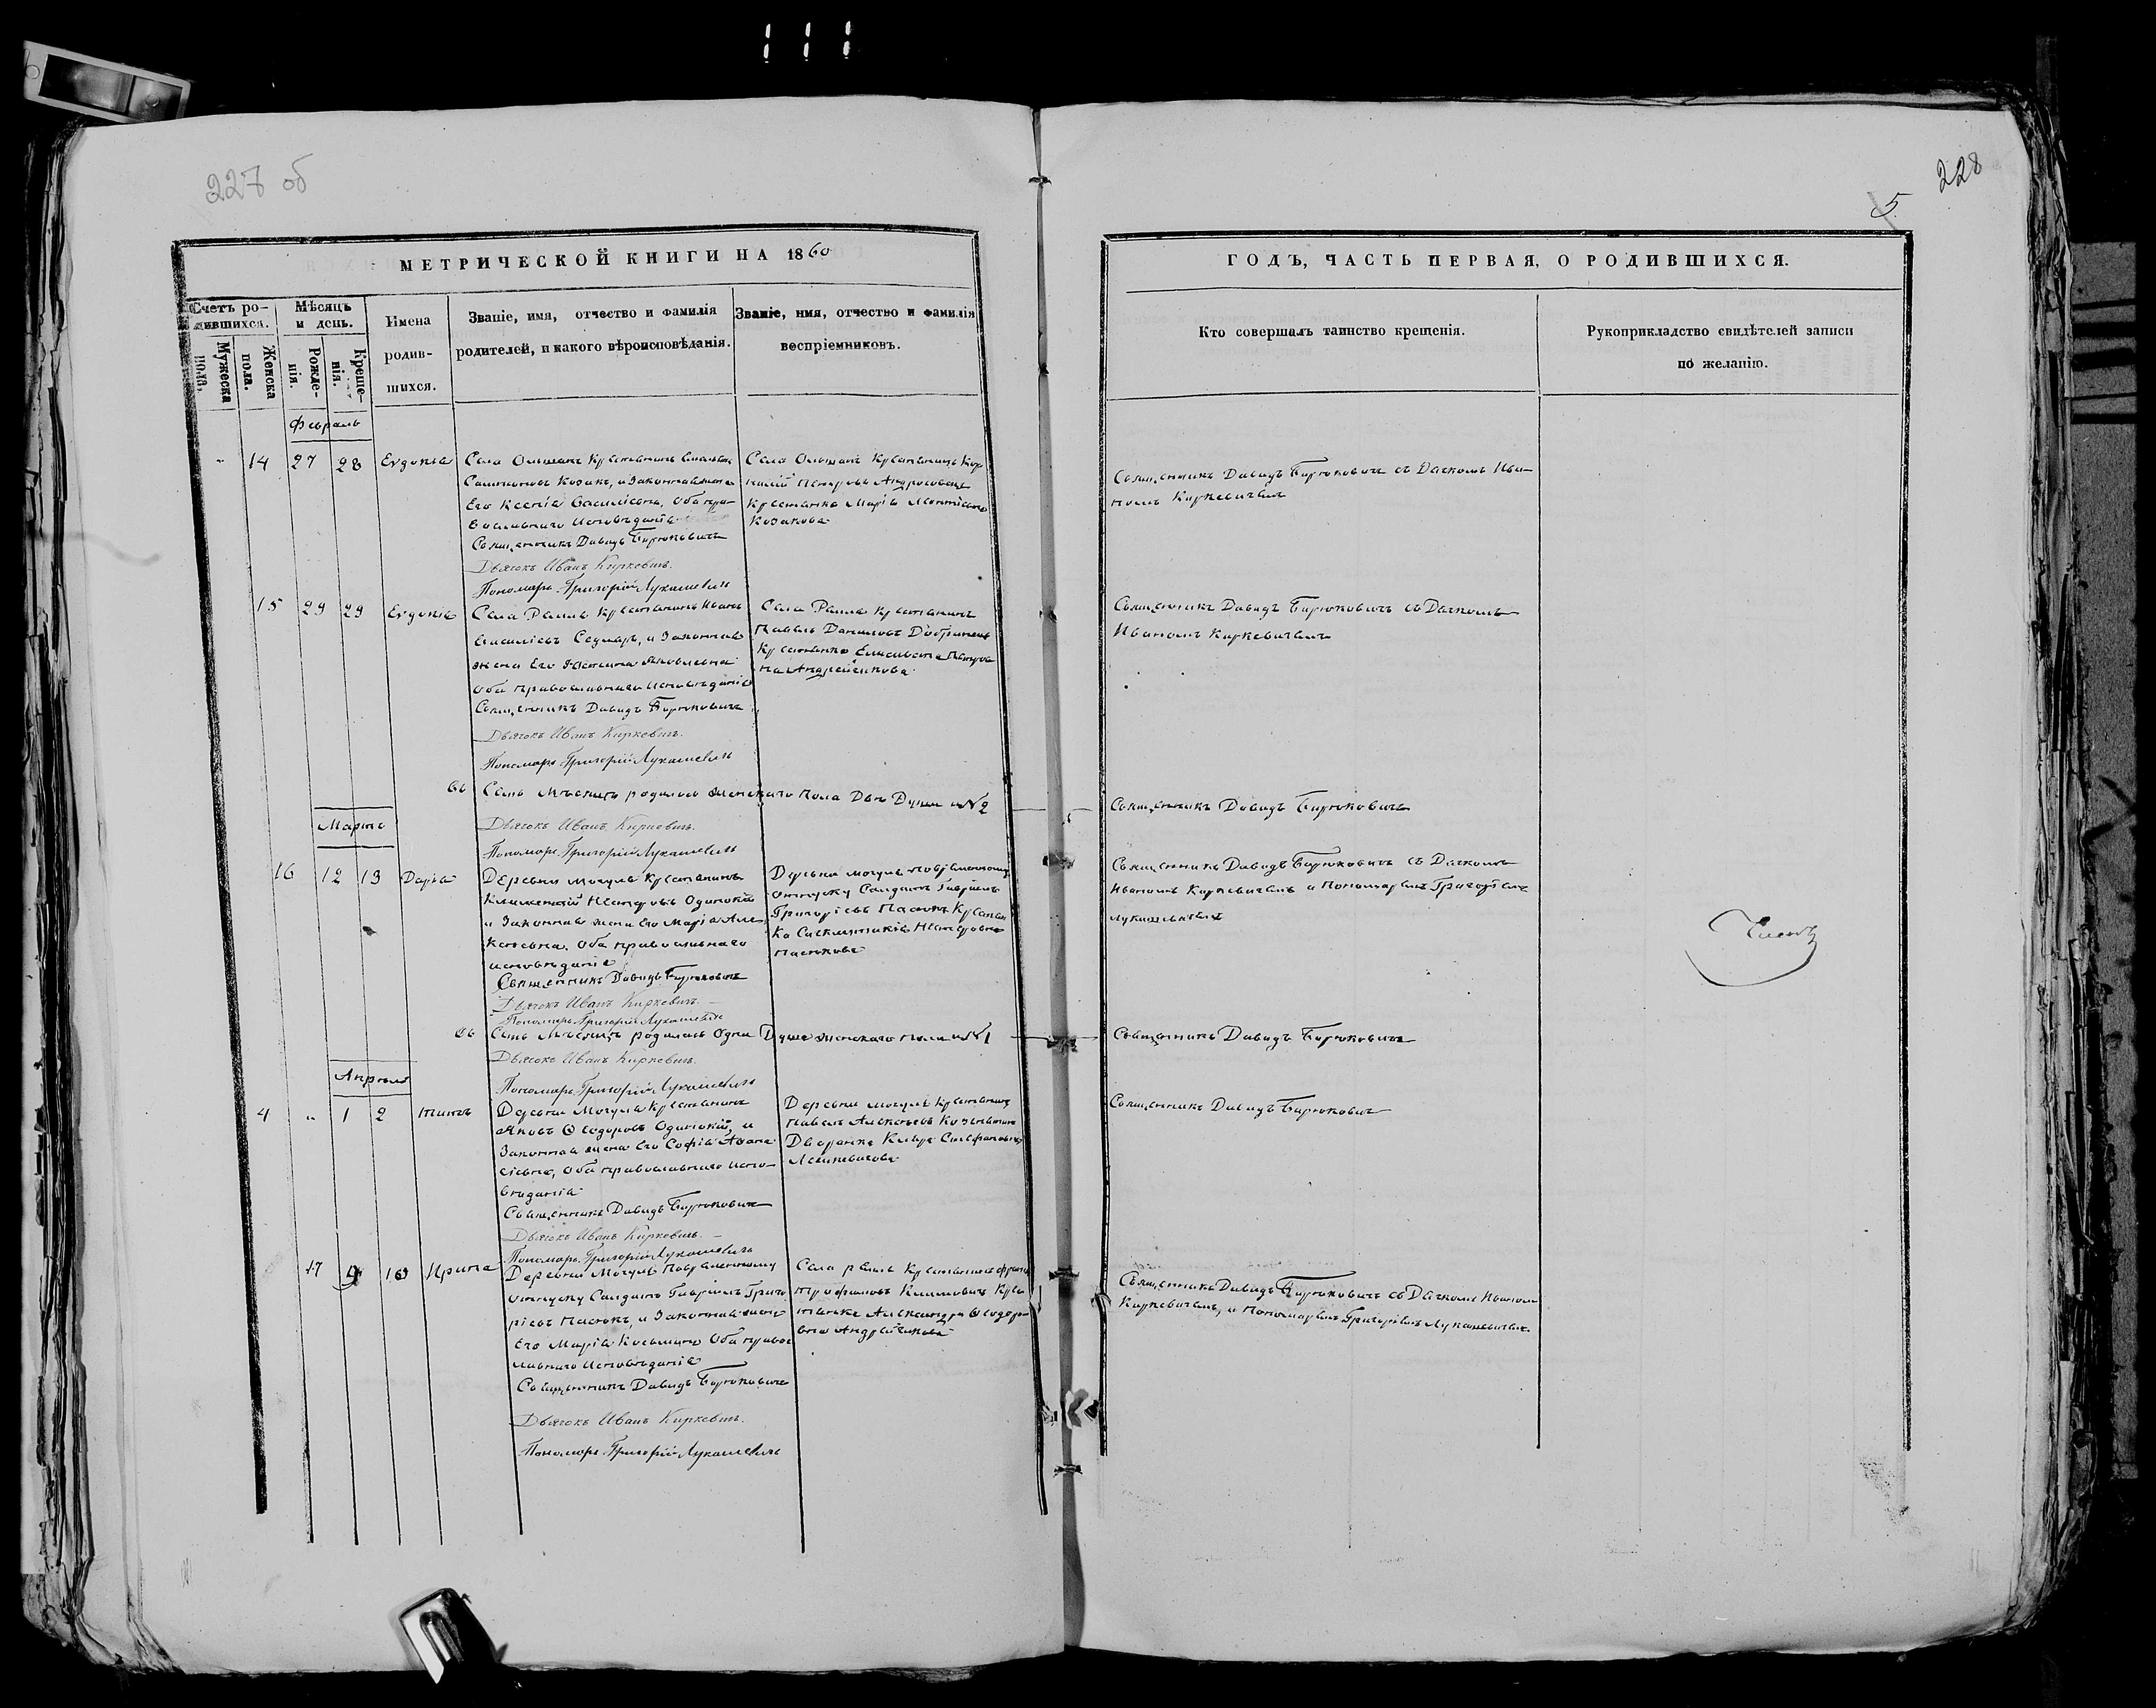 227 об
228
5.
МЕТРИЧЕСКОЙ КНИГИ НА 1860
Счетъ ро-
дившихся.
Мужеска
пола.
Женска
пола.
Мѣсяцъ
и день.
Рожде-
нія.
Креще-
нія.
Имена
родив-
шихся.
Званіе, имя, отчество и фамилія
родителей, и какого вѣроисповѣданія.
Званіе, имя, отчество и фамилія
воспріемниковъ.
Февраль
14 27 28 Евдокія
Села Ольшанъ Крестьянинъ
Козакъ, и Законная жена
Его Ксенія Василіева, Оба пра-
вославнаго Исповѣданія
Священникъ Давидъ Бирюковичъ
Дьячокъ Иванъ Киркевичъ.
Пономарь Григорій Лукашевичъ
Села Ольшанъ Крестьянинъ Кор-
нилій Петровъ
Крестьянка Марія
Козакова
15 29 29 Евдокія
Села Крестьянинъ Иванъ
Василіевъ и Законная
жена Его Яковлевна
Оба православнаго Исповѣданія
Священникъ Давидъ Бирюковичъ
Дьячокъ Иванъ Киркевичъ.
Пономарь Григорій Лукашевичъ
Села Крестьянинъ
Павелъ Даниловъ
Крестьянка Елисавета Петров-
на Андрейчикова
Въ Семъ Мѣсяцѣ родилось женскаго пола Двѣ Души №2
Дьячокъ Иванъ Киркевичъ.
Пономарь Григорій Лукашевичъ
Мартъ
16 12 13 Дарія
Деревни Могуль Крестьянинъ
Климентій Одинокій
и Законная жена Его Марія Але-
ксѣевна. Оба православнаго
исповѣданія
Священникъ Давидъ Бирюковичъ
Дьячокъ Иванъ Киркевичъ.
Пономарь Григорій Лукашевичъ
Деревни Могуль по временному
отпуску Солдатъ Гавріилъ
Григорієвъ Пасюкъ Крестьян-
ка
Пасюкова
Въ Семъ Мѣсяцѣ родилась Одна Душа женскаго пола №1
Дьячокъ Иванъ Киркевичъ.
Пономарь Григорій Лукашевичъ
Апрѣль
4 " 1 2 Титъ
Деревни Могуль Крестьянинъ
Яковъ Ѳеодоровъ Одинокій, и
Законная жена Его Софія Аѳана-
сіевна, Оба православнаго испо-
вѣданія
Священникъ Давидъ Бирюковичъ
Дьячокъ Иванъ Киркевичъ.
Пономарь Григорій Лукашевичъ
Деревни Могуль Крестьянинъ
Павелъ Алексѣевъ
Дворянка Стефановна
17 9 10 Ирина
Деревни Могуль Повременному
отпуску Солдатъ Гавріилъ Григо-
ріевъ Пасюкъ, и Законная жена
Его Марія Косьмина Оба правос-
лавнаго Исповѣданія
Священникъ Давидъ Бирюковичъ
Дьячокъ Иванъ Киркевичъ.
Пономарь Григорій Лукашевичъ
Села Крестьянинъ
Трофимовъ Климовичъ Кре-
стьянка Александра Ѳеодоро-
вна Андрейчикова
ГОДЪ, ЧАСТЬ ПЕРВАЯ, О РОДИВШИХСЯ.
Кто совершалъ таинство крещенія.
Рукоприкладство свидѣтелей записи
по желанію.
Священникъ Давидъ Бирюковичъ съ Дячкомъ Ива-
номъ Киркевичемъ
Священникъ Давидъ Бирюковичъ съ Дячкомъ
Иваномъ Киркевичемъ
Священникъ Давидъ Бирюковичъ
Священникъ Давидъ Бирюковичъ съ Дячкомъ
Иваномъ Киркевичемъ и Пономаремъ Григоріемъ
Лукашевичемъ
Священникъ Давидъ Бирюковичъ
Священникъ Давидъ Бирюковичъ
Священникъ Давидъ Бирюковичъ съ Дячкомъ Иваномъ
Киркевичемъ, и Пономаремъ Григоріемъ Лукашевичемъ.